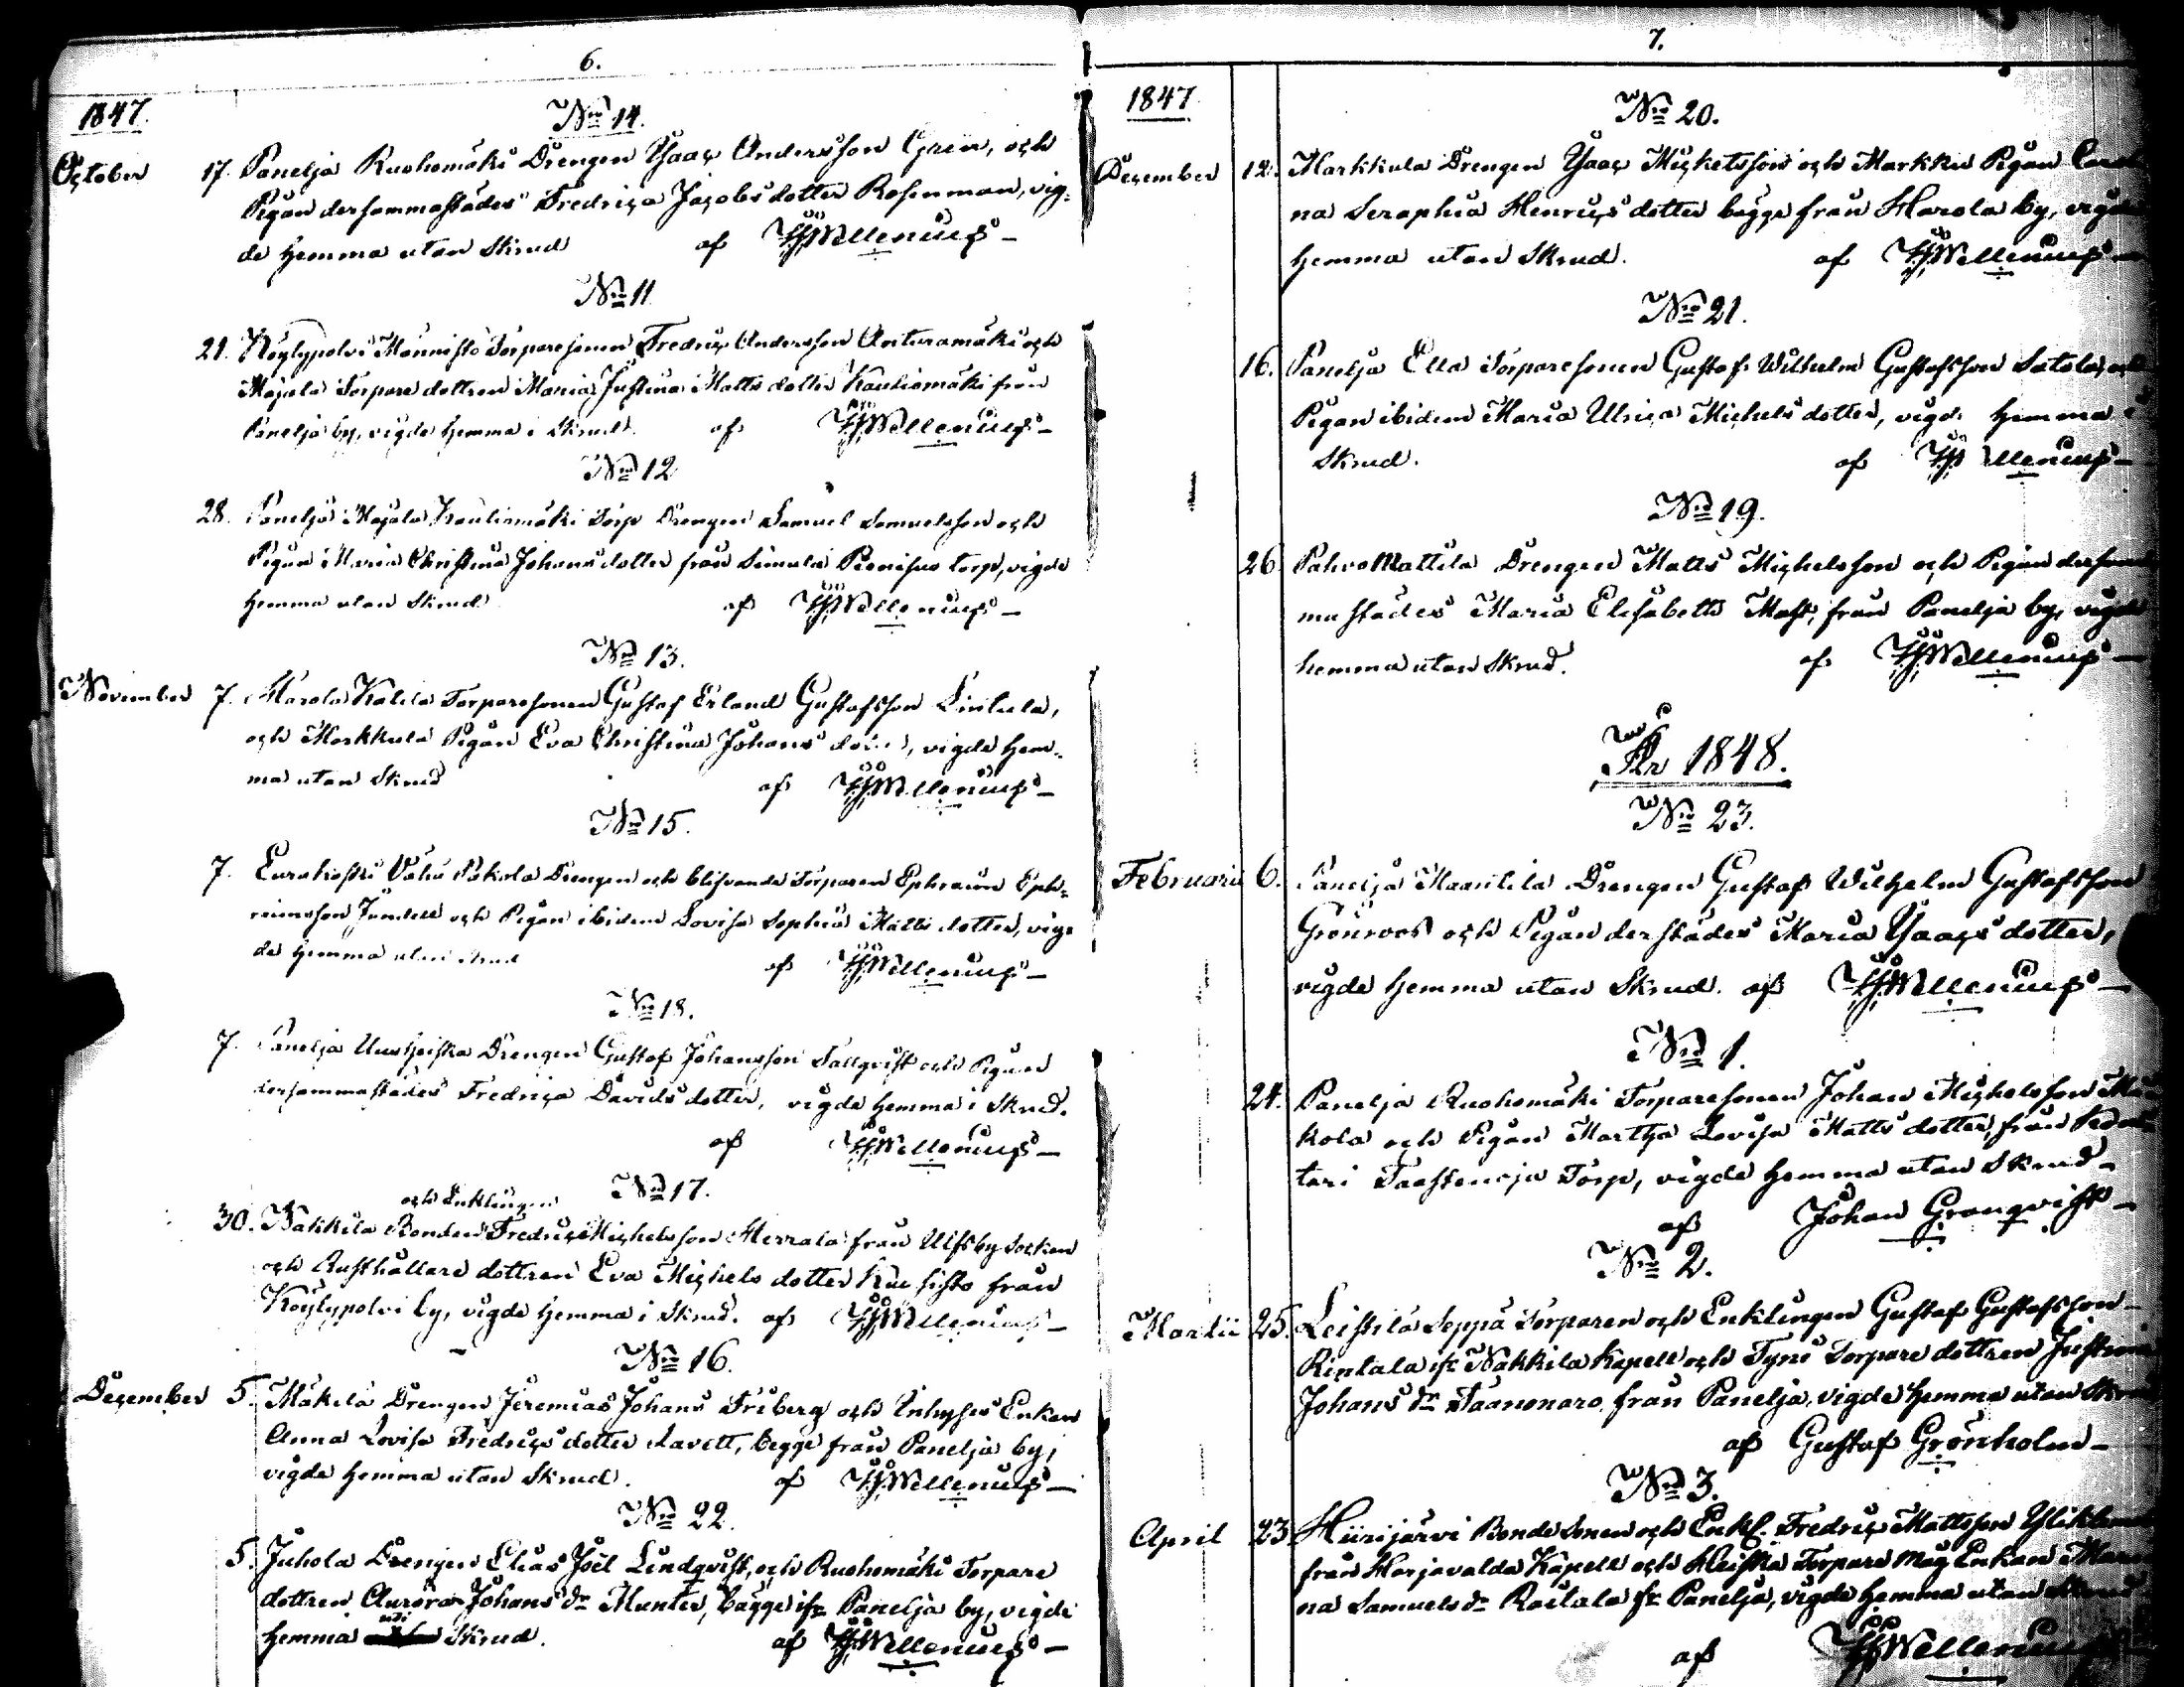 6.
1847.
No 14.
October 17. Panelja Ruohomäki Drengen Isaac Andersson Grén, och
Pigan dersammastädes Fredrica Jacobsdotter Rosenman, vig-
de hemma utan Skrud af Wellenius
No 11
21. Köylypolvi Mannisto Torparesonen Fredric Andersson Anturamäki och
Majala Torpare dottren Maria Justina Matts dotter Kauliamäki från
Panelja by, vigde hemma i Skrud. af Wellenius
No 12
28. Panelja Majala Kauliamäki Torp Drengen Samuel Samuelsson och
Pigan Maria Christina Johans dotter från Simula torp, vigde
hemma utan Skrud af Wellenius
No 13.
November 7. Harola Kalila Torparesonen Gustaf Erland Gustafsson Lintula,
och Markkula Pigan Eva Christina Johans dotter, vigde hem-
ma utan Skrud af Wellenius
No 15.
7. Eurakoski Vähä Pakola Drengen och blifvande Torparen Ephraim Eph-
raimsson Jundell och Pigan ibidem Lovisa Sophia Matts dotter, vig-
de hemma utan Skrud af Wellenius
No 18.
7. Panelja Uusheiska Drengen Gustaf Johansson Tallqvist och Pigan
dersammastädes Fredrica Davids dotter, vigde hemma i Skrud.
af Wellenius
No 17.
och Enklingen
30. Nakkila Bonden Fredric Michelsson Herrala från Ulfsby Socken
och Rusthållare dottren Eva Michels dotter från
Köylypolvi by, vigde hemma i Skrud. af Wellenius
No 16.
December 5. Mäkilä Drengen Jeremias Johans Friberg och Inhyses Enkan
Anna Lovisa Fredrics dotter Lavett, begge från Panelja by,
vigde hemma utan Skrud. af Wellenius
No 22.
5. Juhola Drengen Elias Joël Lindqvist, och Ruohomäki Torpare
dottren Aurora Johans dr Munter, bägge ifr Panelja by, vigde
hemma uti Skrud. af Wellenius
7.
1847
No 20.
December 12. Markkula Drengen Isaac Michelsson och Markku Pigan Caroli-
na Seraphia Henrics dotter begge från Harola by, vigde
hemma utan Skrud. af Wellenius
No 21.
16. Panelja Ella Torparesonen Gustaf Wilhelm Gustafsson Satola och
Pigan ibidem Maria Ulrica Michels dotter, vigde hemma i
Skrud. af Wellenius
No 19.
26 Pahvo Mattila Drengen Matts Michelsson och Pigan dersam-
mastädes Maria Elisabeth Mast, från Panelja by, vigde
hemma utan Skrud. af Wellenius
År 1848.
No 23.
Februarii 6. Panelja Maantila Drengen Gustaf Wilhelm Gustafsson
Grönroos och Pigan derstädes Maria Isaacs dotter,
vigde hemma utan Skrud. af Wellenius
No 1.
24. Panelja Ruohomäki Torparesonen Johan Michelsson
kola och Pigan Martha Lovisa Matts dotter, från
tari Torp, vigde hemma utan Skrud
af Johan Granqvist
No 2.
Martii 25. Leistilä Seppä Torparen och Enklingen Gustaf Gustafsson
Rintala ifr Nakkila Kapell och Tyni Torpare dottren Justina
Johans dr Taanonaro från Panelja, vigde hemma utan Skrud
af Gustaf Grönholm
No 3.
April 23 Hiirijärvi Bonde Sonen och Enkl. Fredric Mattsson
från Harjavalda Kapell och Heiska Torpare måg Enkan Mari-
na Samuels dr Raitala fr Panelja, vigde hemma utan Skrud
af Wellenius